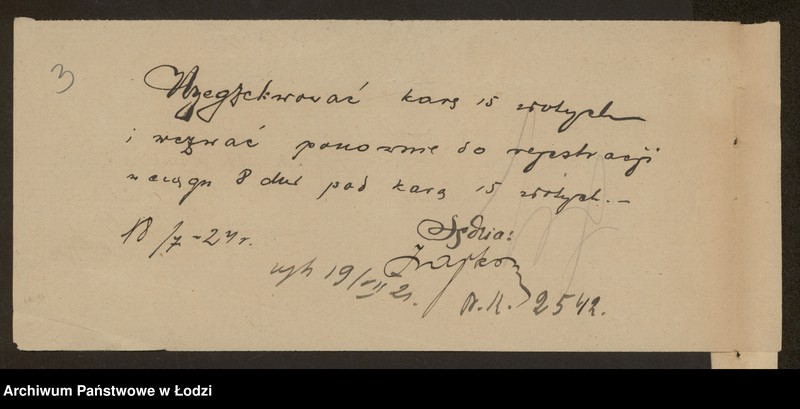 3
Wyegzekwować karę 15 złotych
i wezwać ponownie do rejestracji
w ciągu 8 dni pod karą 15 złotych. –
18/7 – 24 r.
Sędzia:
wyk 19/VII 24.
N. R. 2542.
Archiwum Państwowe w Łodzi